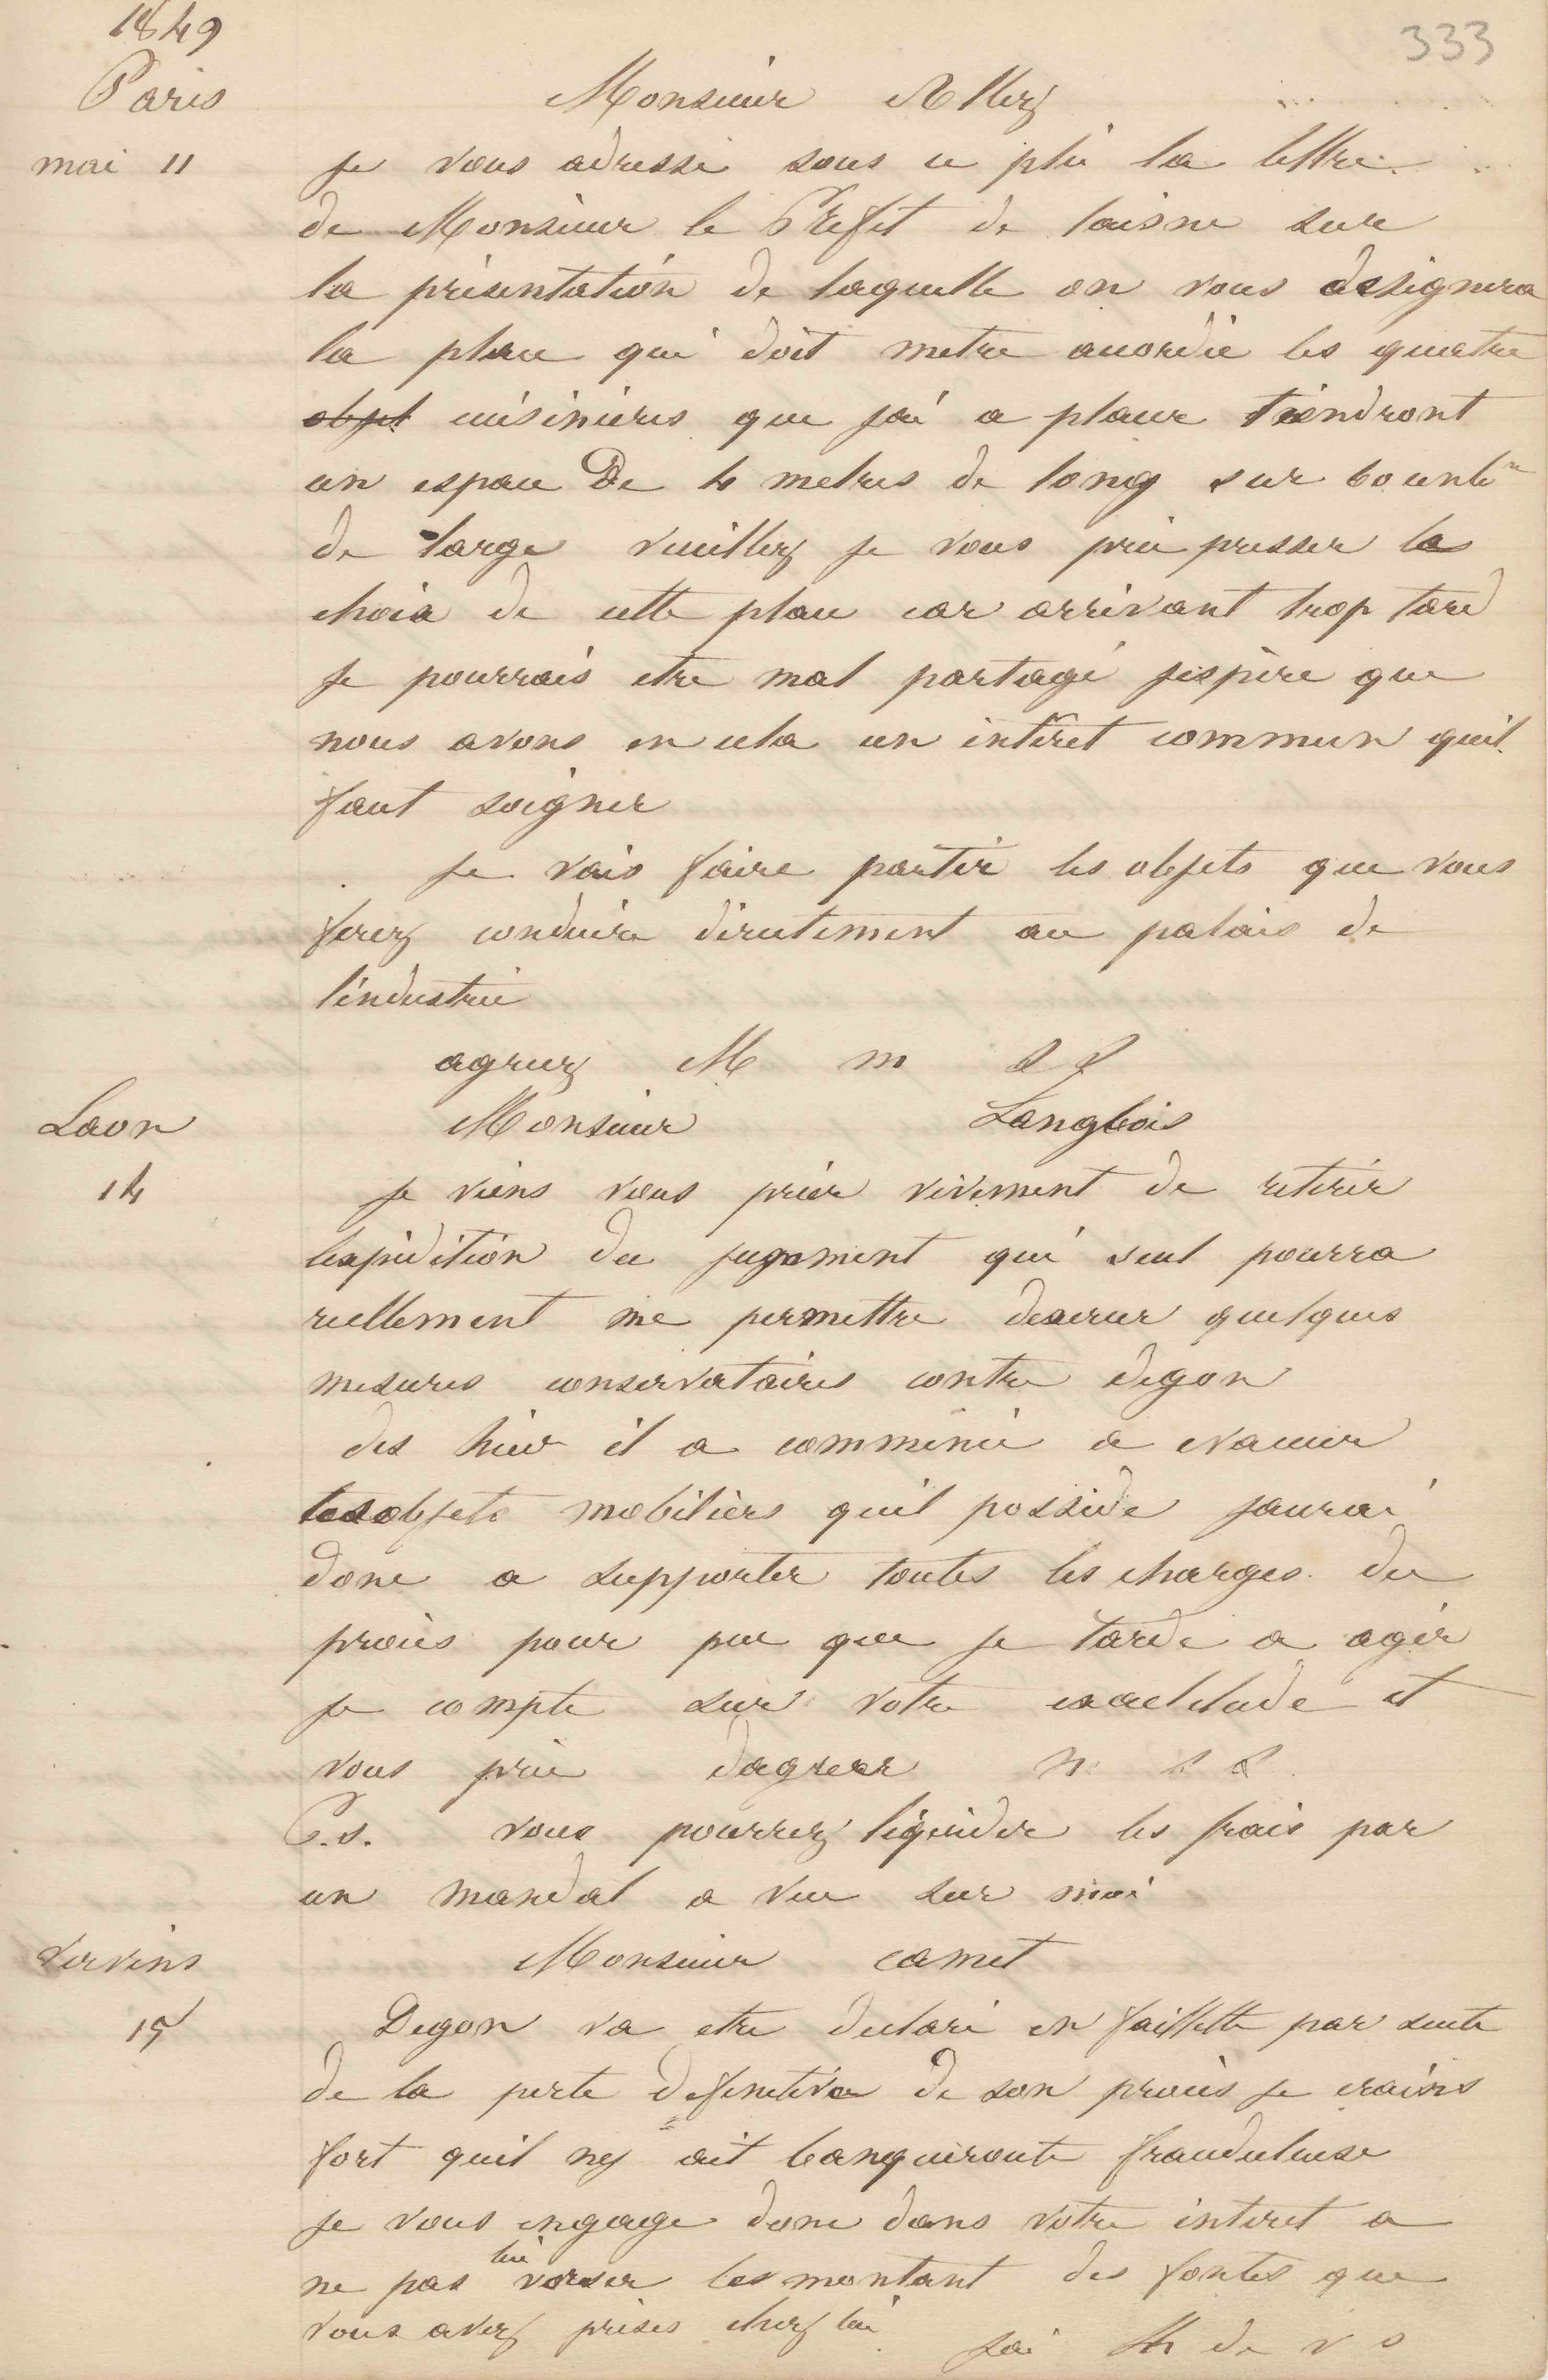 1849
333
Paris
Monsieur Allez
mai 11
je vous adresse sous ce pli la lettre
de Monsieur le Préfet de laisne sur
la présentation de laquelle on vous designera
la place qui doit metre accordée les quatre
objet cuisinieres que jai a placer tiendront
un espace De 4 metres de long sur 60 cent
de large veuillez je vous prie presser le
choix de cette place car arrivant trop tard
je pourrais etre mal partagé jespère que
nous avons en cela un intéret commun quil
faut soigner
je vais faire partir les objets que vous
ferez conduire directement au palais de
lindustrie
agreez M m s s
Laon
Monsieur Langlois
14
je viens vous prier vivement de retirer
lexpedition du jugement qui seul pourra
reellement me permettre dexercer quelques
mesures conservatoires contre degon
des hier il a commencé a evacuer
les objets mobiliers quil possède jaurai
donc a supporter toutes les charges du
procès pour peu que je tarde a agir
je compte sur votre exactitude et
vous prie dagreer m s s
P.S. vous pourrez liquider les frais par
un mandat a vue sur moi
Vervins
Monsieur camet
15
Degon va etre declaré en faillette par suite
de la perte definitive de son procès je crains
fort quil ny ait banqueroute frauduleuse
je vous engage donc dans votre interet a
ne pas lui verser les montant des fontes que
vous avez prises chez lui
jai lh de v s